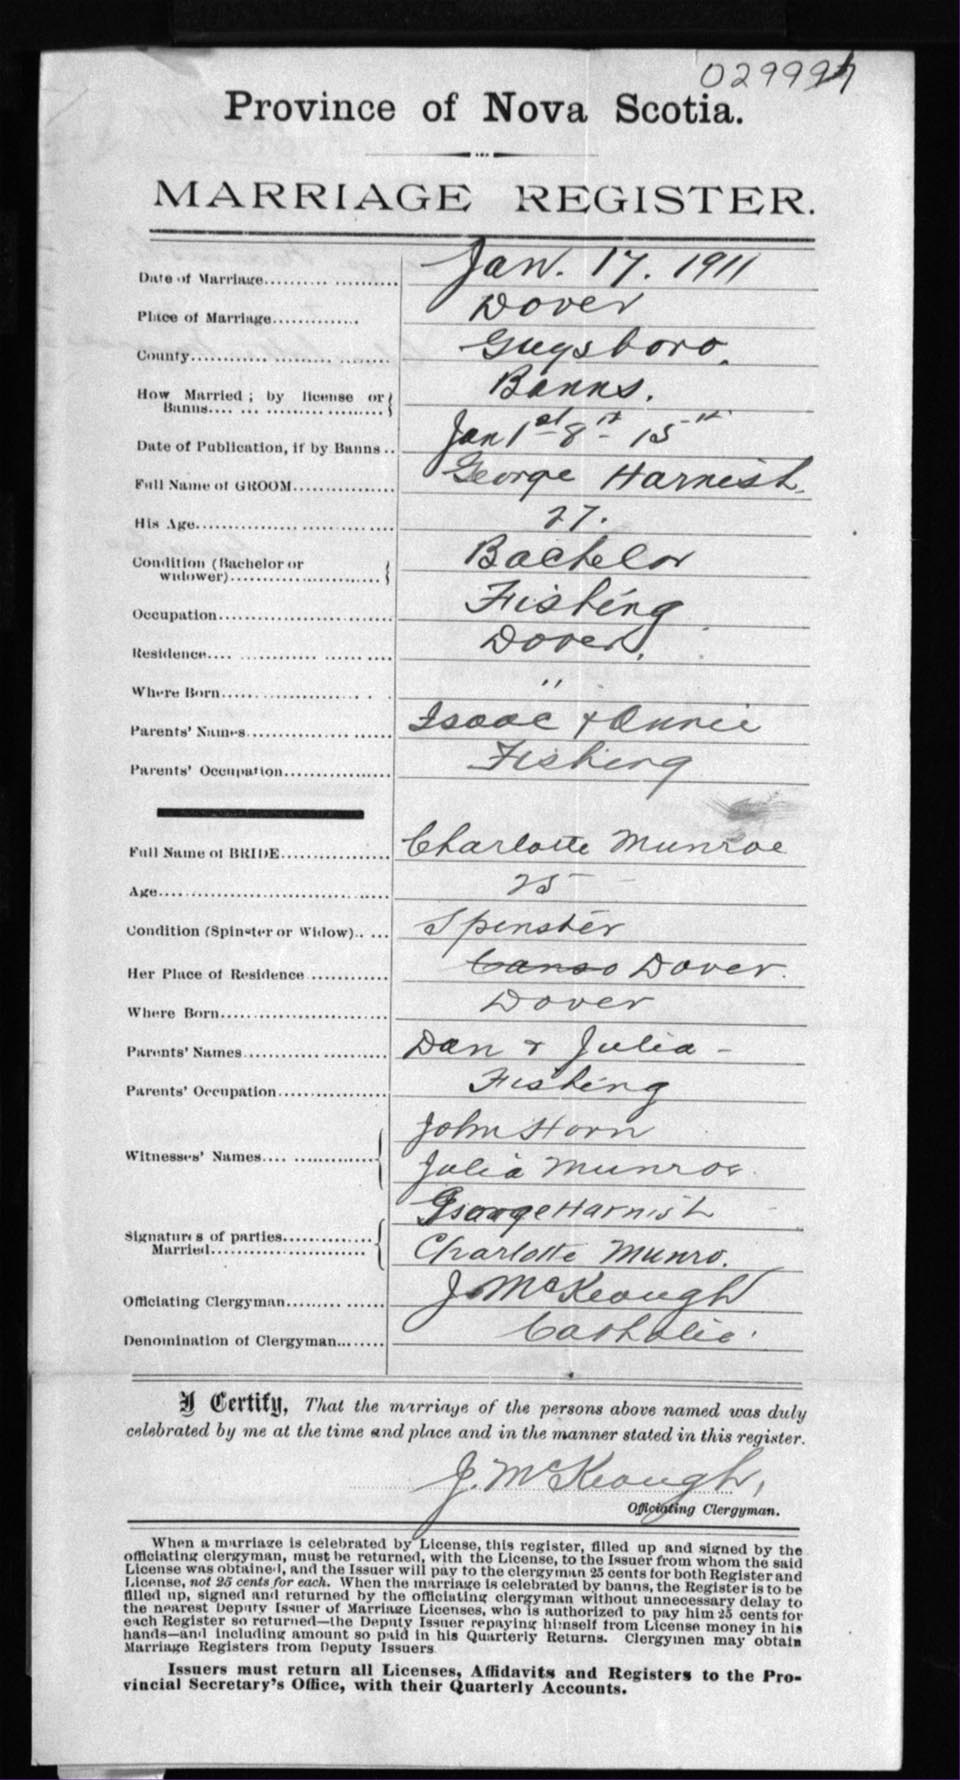 029997
Province of Nova Scotia.
MARRIAGE REGISTER.
Date of Marriage Jan. 17. 1911
Place of Marriage Dover
County Guysboro.
How Married; by license or Banns Banns.
Date of Publication, if by Banns Jan 1st 8th 15th
Full Name of GROOM George Harnish
His Age 27.
Condition (Bachelor or widower) Bachelor
Occupation Fishing
Residence Dover.
Where Born "
Parents' Names Isaac & Annie
Parents' Occupation Fishing
Full Name of BRIDE Charlotte Munroe
Age 25
Condition (Spinster or Widow) Spinster
Her Place of Residence Canso Dover.
Where Born Dover
Parents' Names Dan & Julia
Parents' Occupation Fishing
Witnesses' Names John Horn
Julia Munroe
Signatures of parties Married George Harnish
Charlotte Munro.
Officiating Clergyman J. McKeough
Denomination of Clergyman Catholic.
I Certify, That the marriage of the persons above named was duly
celebrated by me at the time and place and in the manner stated in this register.
J. McKeough,
Officiating Clergyman.
When a marriage is celebrated by License, this register, filled up and signed by the
officiating clergyman, must be returned, with the License, to the Issuer from whom the said
License was obtained, and the Issuer will pay to the clergyman 25 cents for both Register and
License, not 25 cents for each. When the marriage is celebrated by banns, the Register is to be
filled up, signed and returned by the officiating clergyman without unnecessary delay to
the nearest Deputy Issuer of Marriage Licenses, who is authorized to pay him 25 cents for
each Register so returned—the Deputy Issuer repaying himself from License money in his
hands—and including amount so paid in his Quarterly Returns. Clergymen may obtain
Marriage Registers from Deputy Issuers
Issuers must return all Licenses, Affidavits and Registers to the Pro-
vincial Secretary's Office, with their Quarterly Accounts.